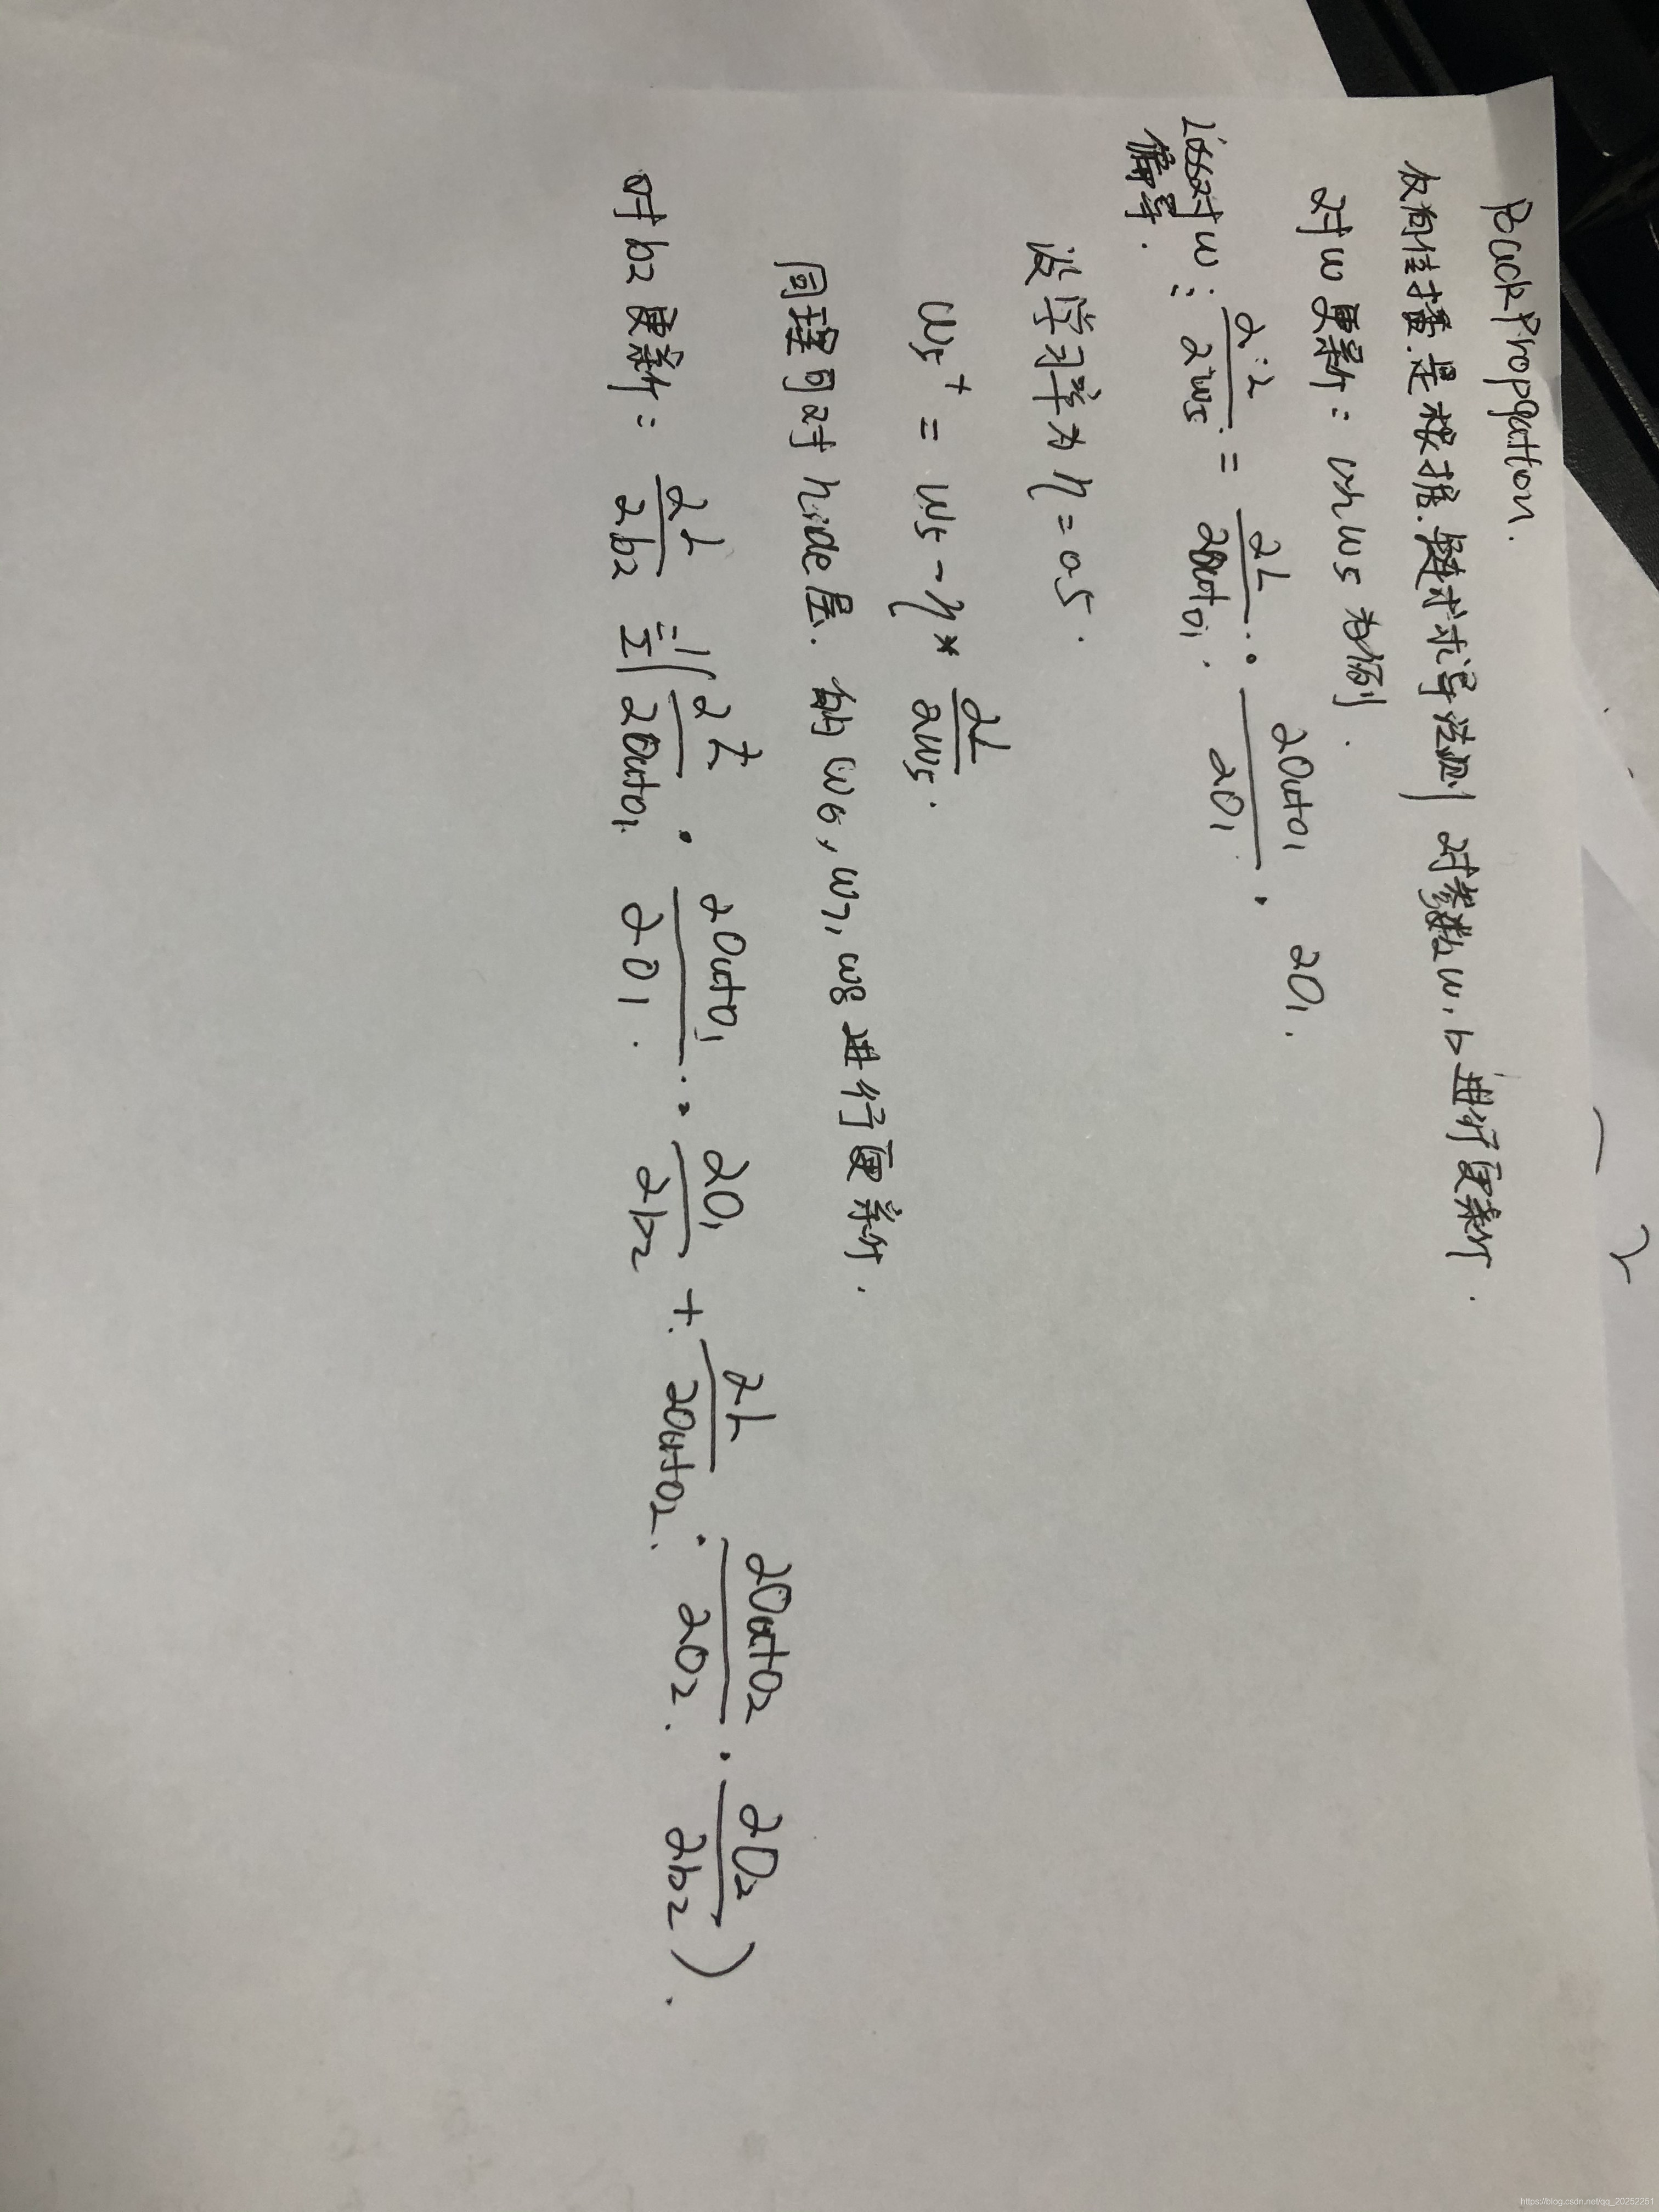 BackPropgation.
反向传播.是根据.链式求导法则 对参数w,b进行更新.
对w更新: 以w5为例.
Loss对w: ∂L/∂w5 = ∂L/∂outo1 · ∂outo1/∂o1 · ∂o1
偏导.
设学习率为η=0.5.
w5+ = w5 - η * ∂L/∂w5.
同理可对hide层.的w6,w7,w8进行更新.
对b2更新: ∂L/∂b2 = (∂L/∂outo1 · ∂outo1/∂o1 · ∂o1/∂b2 + ∂L/∂outo2 · ∂outo2/∂o2 · ∂o2/∂b2).
https://blog.csdn.net/qq_20252251